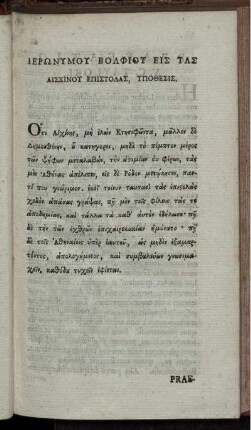 ΙΕΡΩΝΥΜΟΥ ΒΟΛΦΙΟΥ ΕΙΣ ΤΑΣ
ΑΙΣΧΙΝΟΥ ΕΠΙΣΤΟΛΑΣ, ΥΠΟΘΕΣΙΣ.
Ὅτι Αἰχίνης, μὴ ἑλὼν Κτησιφῶντα, μᾶλλον δὲ
Δημοσθένην, οὗ κατηγόρει, μηδὲ τὸ πέμπτον μέρος
τῶν ψήφων μεταλαβὼν, τὴν ἀτιμίαν οὐ φέρων, τὰς
μὲν Ἀθήνας ἀπέλιπεν, εἰς δὲ Ῥόδον μετῴκησεν, παν-
τί που γνώριμον. ἐκεῖ τοίνυν ταυτασὶ τὰς ἐπιστολὰς
σχεδὸν ἁπάσας γράψας, πῆ μὲν τοῖς φίλοις τὰς τῆς
ἀποδημίας, καὶ τἄλλα τὰ καθ' αὑτὸν ἐδήλωσε· πῆ
δὲ τὴν τῶν ἐχθρῶν ἐπιχαιρεκακίαν ἠμύνατο· πῆ
δὲ τοῖς Ἀθηναίοις ὑπὲρ ἑαυτοῦ, ὡς μηδὲν ἐξαμαρ-
τόντος, ἀπολογούμενος, καὶ συμβουλεύων γνωσιμα-
χεῖν, καθόδου τυχεῖν ἐφίεται.
PRAE-